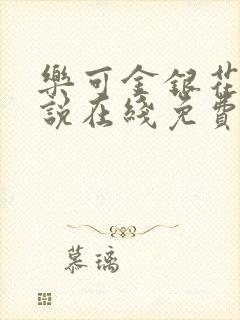 樂可金銀花
說在綫免費
慕璃